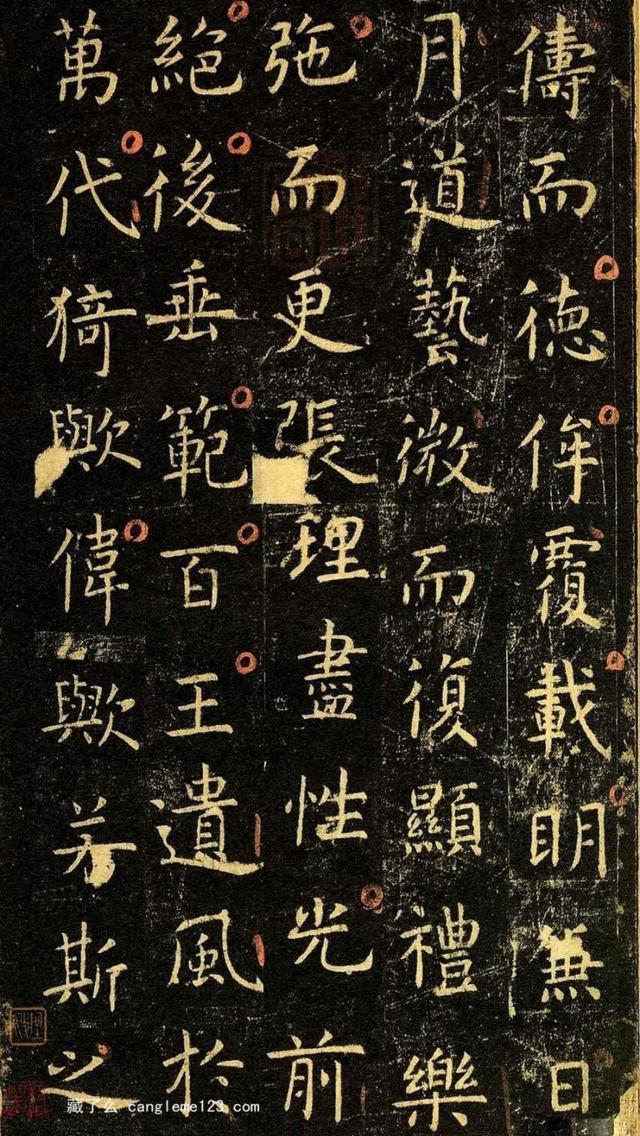 儔而德侔覆載明兼日
月道藝微而復顯禮樂
弛而更張理盡性光前
絕後垂範百王遺風於
萬代猗歟偉歟若斯之
藏了么 cangleme123.com